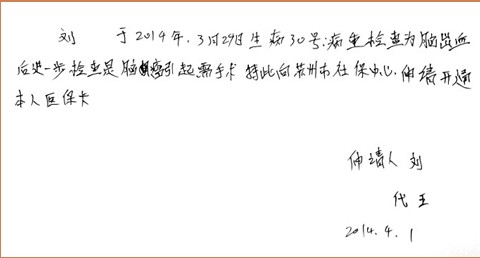 刘 于2014年.3月29日生病30号:病重检查为脑出血
后进一步检查是脑瘤引起需手术 特此向苏州市社保中心.伸请开通
本人医保卡
伸请人 刘
代 王
2014.4.1